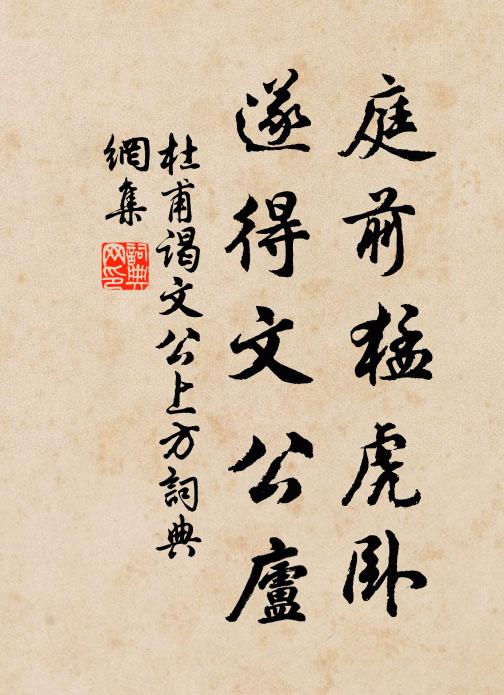 庭前猛虎卧
遂得文公廬
杜甫謁文公上方詞典
網集
詞典
网印